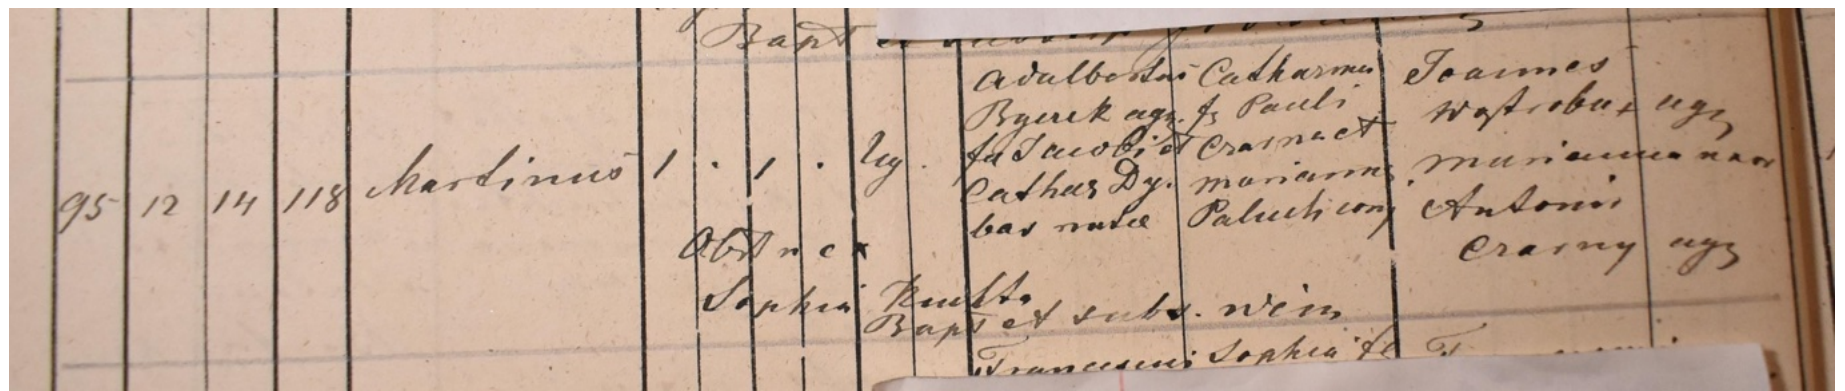 Bapt et
95 12 14 118 Martinus 1 . 1 . Ug .
Adalbertus
Byczek agr.
fs Jacobi et
Cathar Dy.
bas natae
Catharina
fa Pauli
Czarna et
Marianna
Paluch conj
Joannes
Wątroba + agr
Marianna uxor
Antonii
Czarny agr
Obst n e x
Sophia
Bapt et subs. Wein
Franciscus Sophia fa